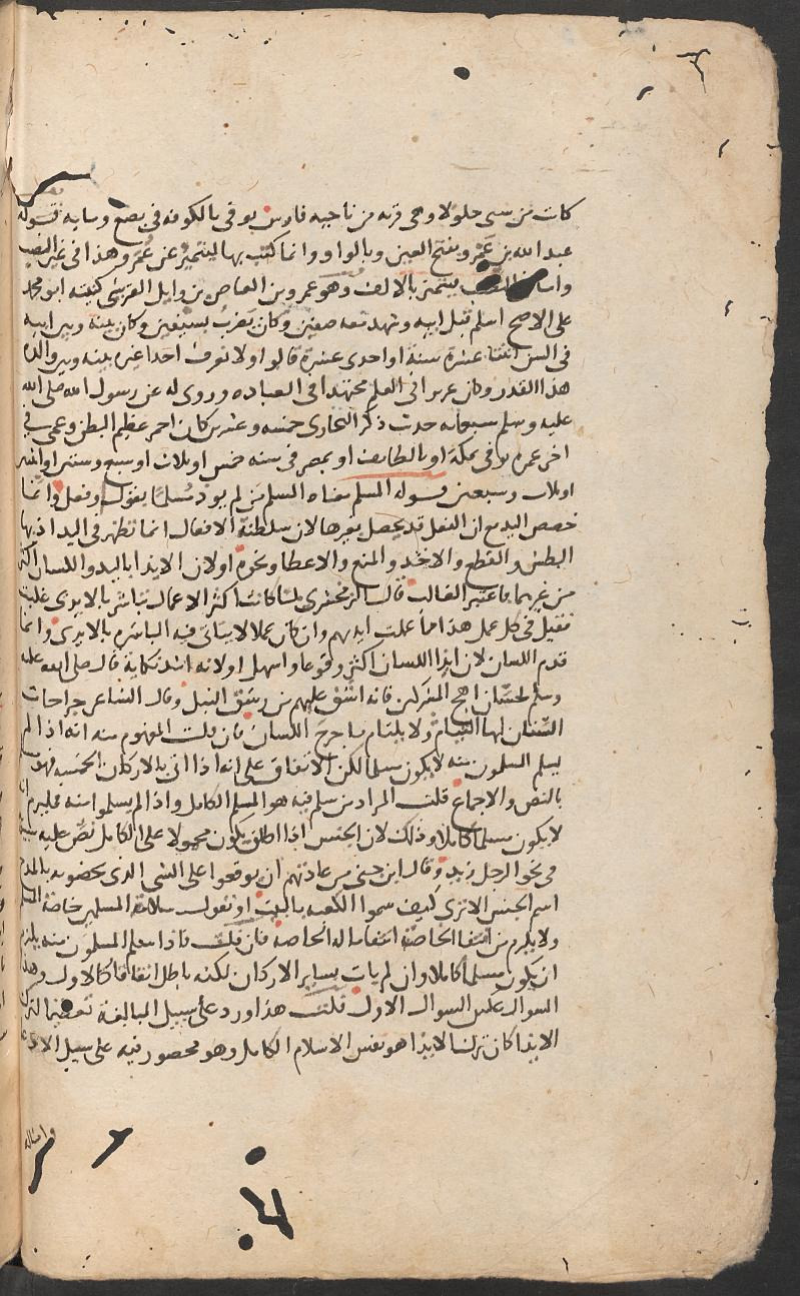 كانت من سبي جلولا وهي قرية من ناحية فارس توفي بالكوفة في بضع وماية قوله
عبد الله بن عمرو بفتح العين وبالواو وانما كتب بها ليتميز عن عمر وهذا في غير النصب
واما النصب يتميز بالالف وهو عمرو بن العاص بن وايل القرشي كنيته ابو محمد
على الاصح اسلم قبل ابيه وشهد معه صفين وكان يضرب بسيفين وكان بينه وبين ابيه
في السن اثنتا عشرة سنة او احدى عشرة قالوا ولا نعرف احدا غيره بينه وبين والده
هذا القدر وكان غزير العلم مجتهدا في العبادة وروى له عن رسول الله صلى الله
عليه وسلم سبعماية حديث ذكر البخاري خمسة وعشرين كان احمر عظيم البطن وعمي في
اخر عمره توفي بمكة او بالطايف او بمصر في سنة خمس او ثلاث او سبع وستين او اثنتين
او ثلاث وسبعين قوله المسلم معناه المسلم من لم يوذ مسلما بقول وفعل وانما
خصص اليد مع ان الفعل قد يحصل بغيرها لان سلطنة الافعال انما تظهر في اليد اذ بها
البطش والقطع والاخذ والمنع والاعطا ونحوه اولان الايذا باليد واللسان اكثر
من غيرهما فاعتبر الغالب قال الزمخشري لما كانت اكثر الاعمال تباشر بالايدي غلبت
فقيل في كل عمل هذا مما عملت ايديهم وان كان عملا لا يتاتى فيه المباشرة بالايدي وانما
قدم اللسان لان ايذا اللسان اكثر وقوعا واسهل اولانه اشد نكاية قال صلى الله عليه
وسلم لحسان اهج المشركين فانه اشق عليهم من رشق النبل وقال الشاعر جراحات
السنان لها التيام ولا يلتام ما جرح اللسان فان قلت المفهوم منه انه اذا لم
يسلم المسلمون منه لا يكون مسلما لكن الاتفاق على انه اذا اتى بالاركان الخمسة فهو مسلم
بالنص والاجماع قلت المراد من سلم فيه هو المسلم الكامل واذا لم يسلموا منه فيلزم ان
لا يكون مسلما كاملا وذلك لان الجنس اذا اطلق يكون محمولا على الكامل نص عليه
في نحو الرجل زيد وقال ابن جني من عادتهم ان يوقعوا على الشي الذي يخصونه بالمدح
اسم الجنس الا ترى كيف سموا الكعبة بالبيت او نقول سلامة المسلمين خاصة المسلم
ولا يلزم من انتفا الخاصة انتفا ما له الخاصة فان قلت فاذا سلم المسلمون منه يلزم
ان يكون مسلما كاملا وان لم يات بساير الاركان لكنه باطل اتفاقا كالاول وهذا
السوال عكس السوال الاول قلت هذا ورد على سبيل المبالغة تعظيما لترك
الايذا كان ترك الايذا هو نفس الاسلام الكامل وهو محصور فيه على سبيل الادعا
وامثاله